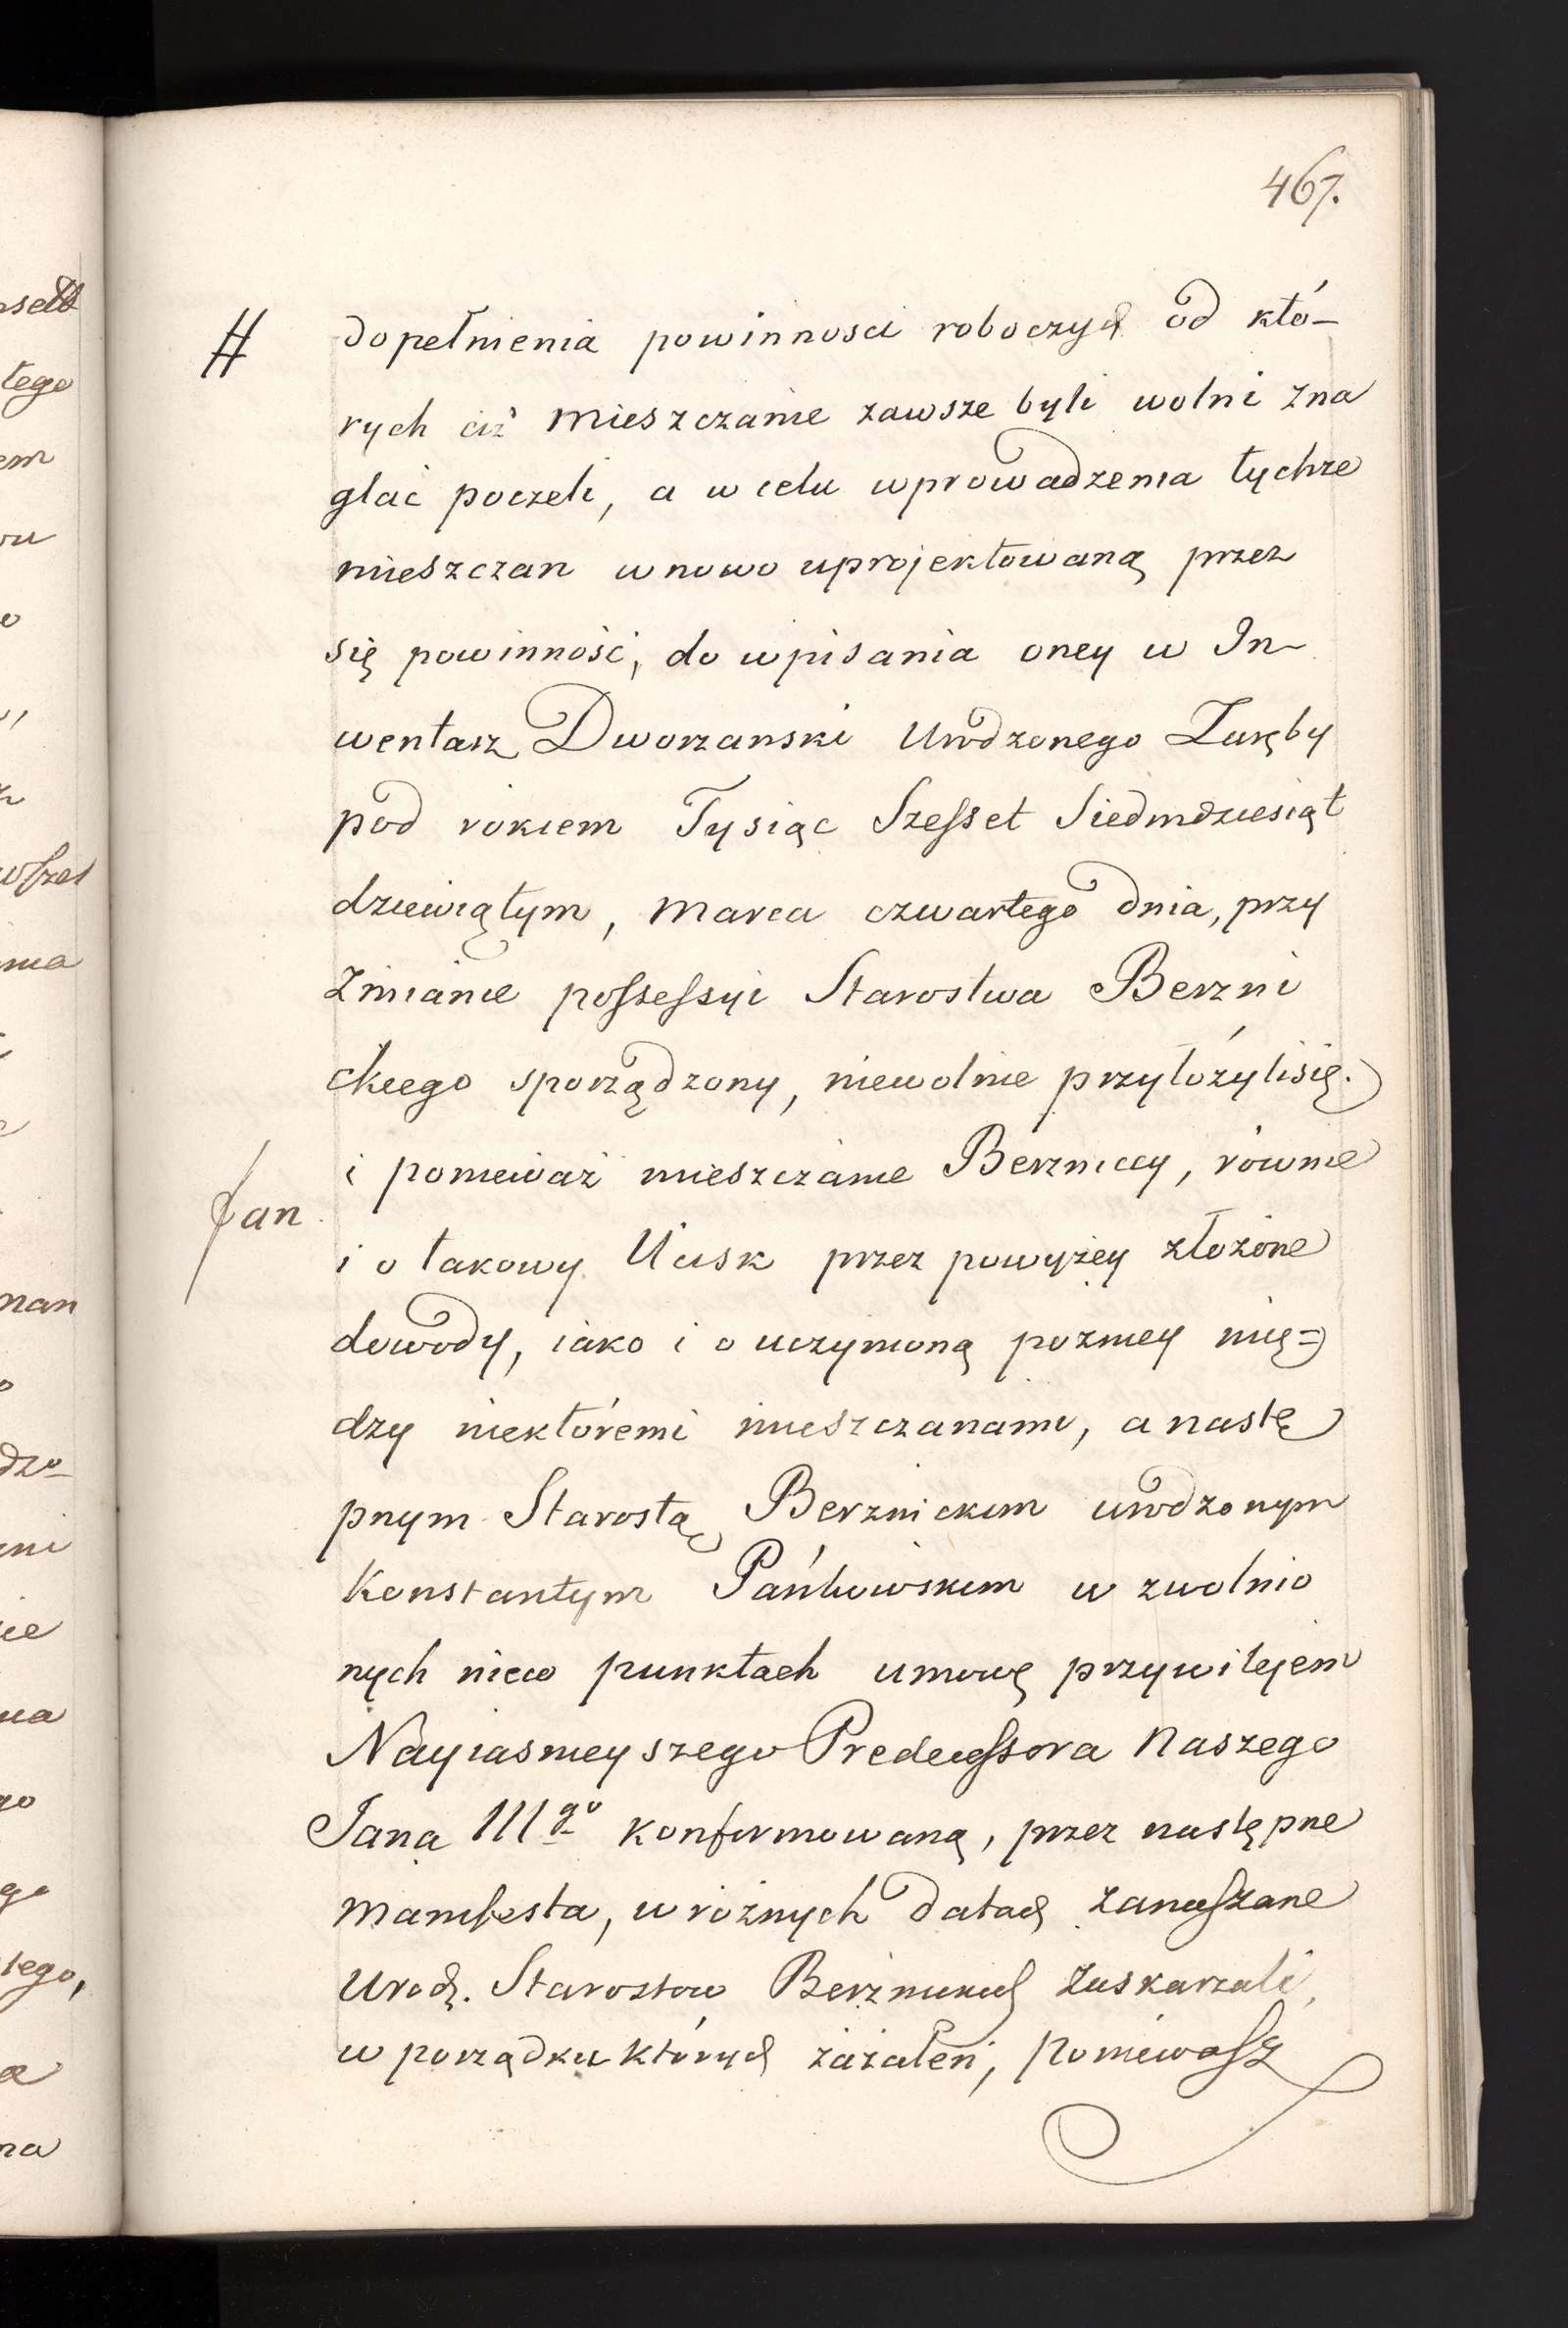 467.
# dopełnienia powinnosci roboczych od któ-
rych ciż mieszczanie zawsze byli wolni zna
glać poczeli, a w celu wprowadzenia tychże
mieszczan w nowo uprojektowaną przez
się powinność, do wpisania oney w In-
wentarz Dworzanski Urodzonego Zaręby
pod rokiem Tysiąc Szesset Siedmdziesiąt
dziewiątym, Marca czwartego dnia, przy
Zmianie possessyi Starostwa Berzni
ckiego sporządzony, niewolnie przyłożylisię.
i ponieważ mieszczanie Berzniccy, równie
Jan
i o takowy Ucisk przez powyżey złożone
dowody, iako i o uczynioną pozniey mię=
dzy niektóremi mieszczanami, a nastę
pnym Starostą Berznickim urodzonym
Konstantym w zwolnio
nych nieco punktach umowę przywilejem
Nayiasnieyszego Predecessora Naszego
Jana III go konfirmowaną, przez następne
manifesta, w różnych datach zanaszane
Urodz. Starostow Berznickich zaskarzali,
w porządku których zażaleń, poniewasz